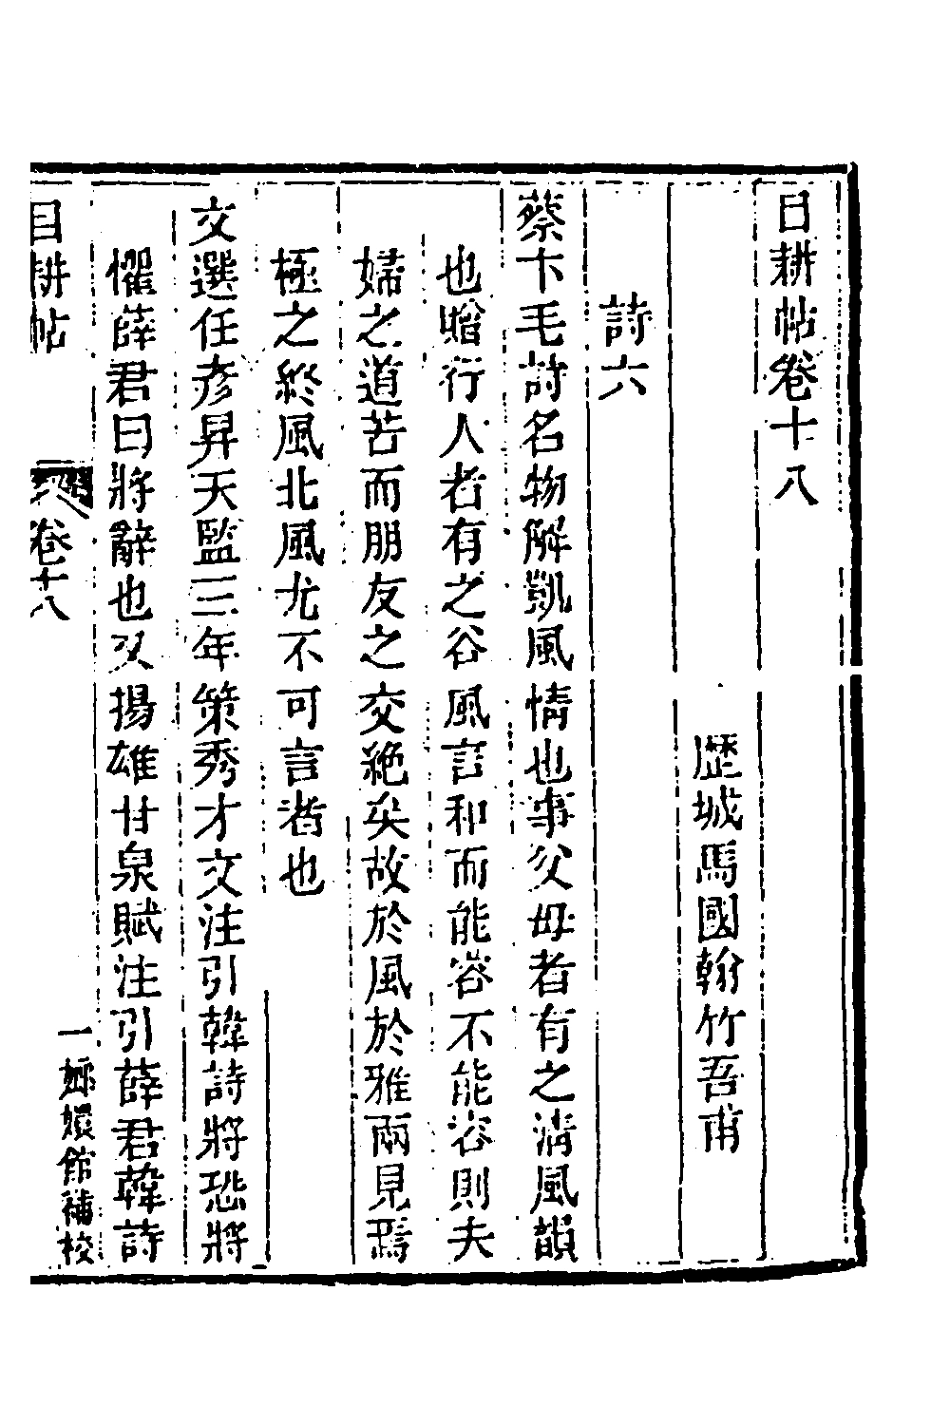 目耕帖卷十八
歷城馬國翰竹吾甫
詩六
蔡卞毛詩名物解凱風情也事父母者有之淸風韻
也贈行人者有之谷風言和而能容不能容則夫
婦之道苦而朋友之交絶矣故於風於雅兩見焉
極之終風北風尤不可言者也
文選任彦昇天監三年策秀才文注引韓詩將恐將
懼薛君曰將辭也又揚雄甘泉賦注引薛君韓詩
目耕帖
卷十八
一
嫏嬛館補校